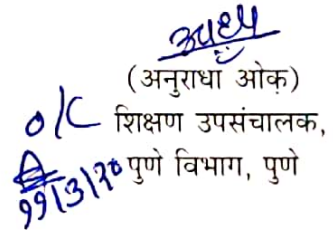 (अनुराधा ओक)
O/C शिक्षण उपसंचालक,
११/३/२० पुणे विभाग, पुणे